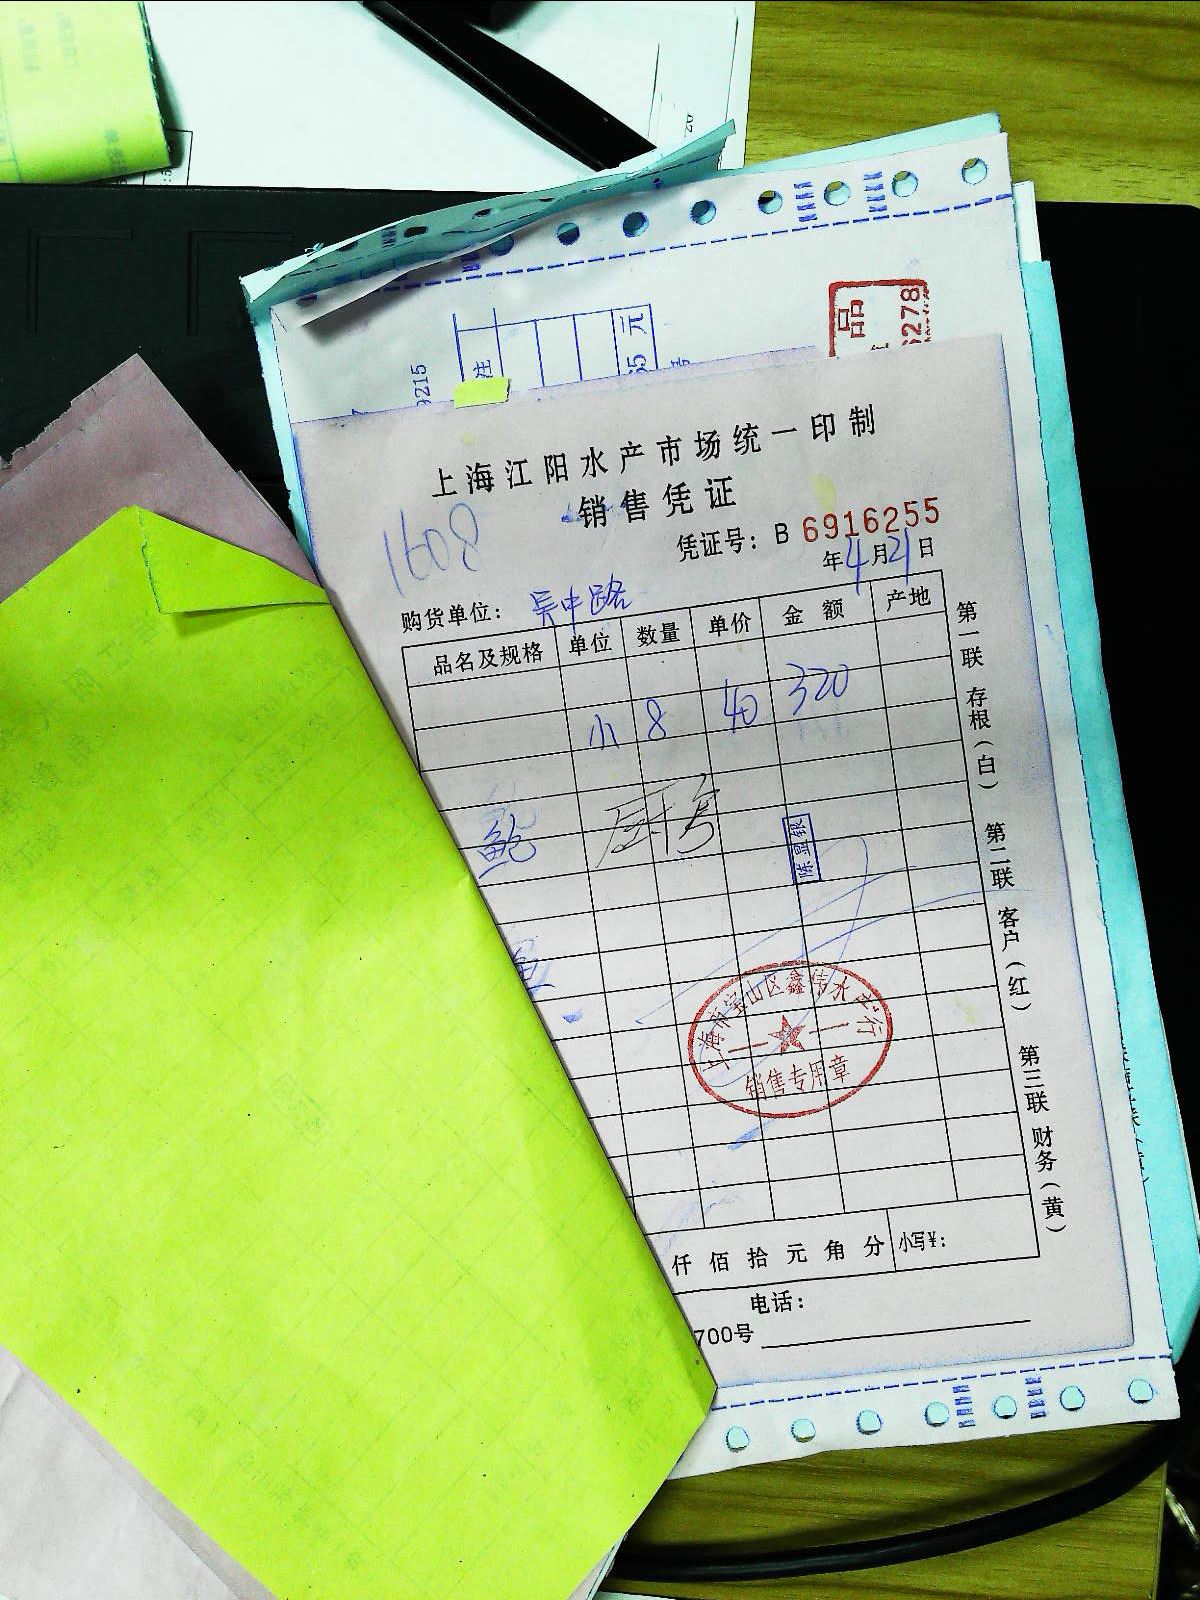 上海江阳水产市场统一印制
销售凭证
1608
凭证号：B 6916255
年4月21日
购货单位：吴中路
品名及规格 单位 数量 单价 金额 产地
小 8 40 320
鲍
陈显银
上海市宝山区鑫伟水产行
销售专用章
仟佰拾元角分 小写¥：
电话：
700号
第一联 存根（白） 第二联 客户（红） 第三联 财务（黄）
9215
注
65元
号
品
6278